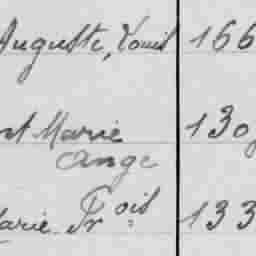 Auguste, Louis 166
Marie 130
Ange
Marie Fr ois 133